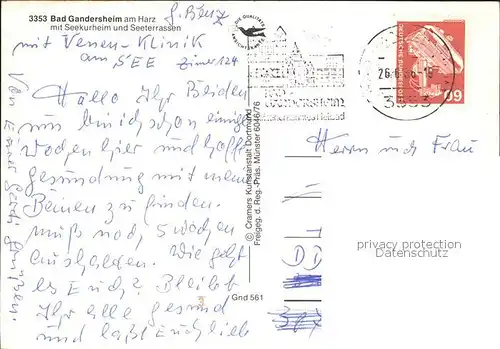 3353 Bad Gandersheim am Harz
mit Seekurheim und Seeterrassen
mit Venen-Klinik
am SEE Zimer 124
Hallo Ihr Beiden
nun bin ich schon einige
Wochen hier und hoffe
gesundung mit meinen
Beinen zu finden.
muß noch, 5 Wochen
aushalten. Wie geht
es Euch? Bleibt
Ihr alle gesund
und laßt Euch liebe
Von Eurer
Gnd 561
© Cramers Kunstanstalt Dortmund
Freigeg. d. Reg.-Präs. Münster 6046/76
BAD
GANDERSHEIM
DEUTSCHE BUNDESPOST
60
3353
Herrn und Frau
privacy protection
Datenschutz